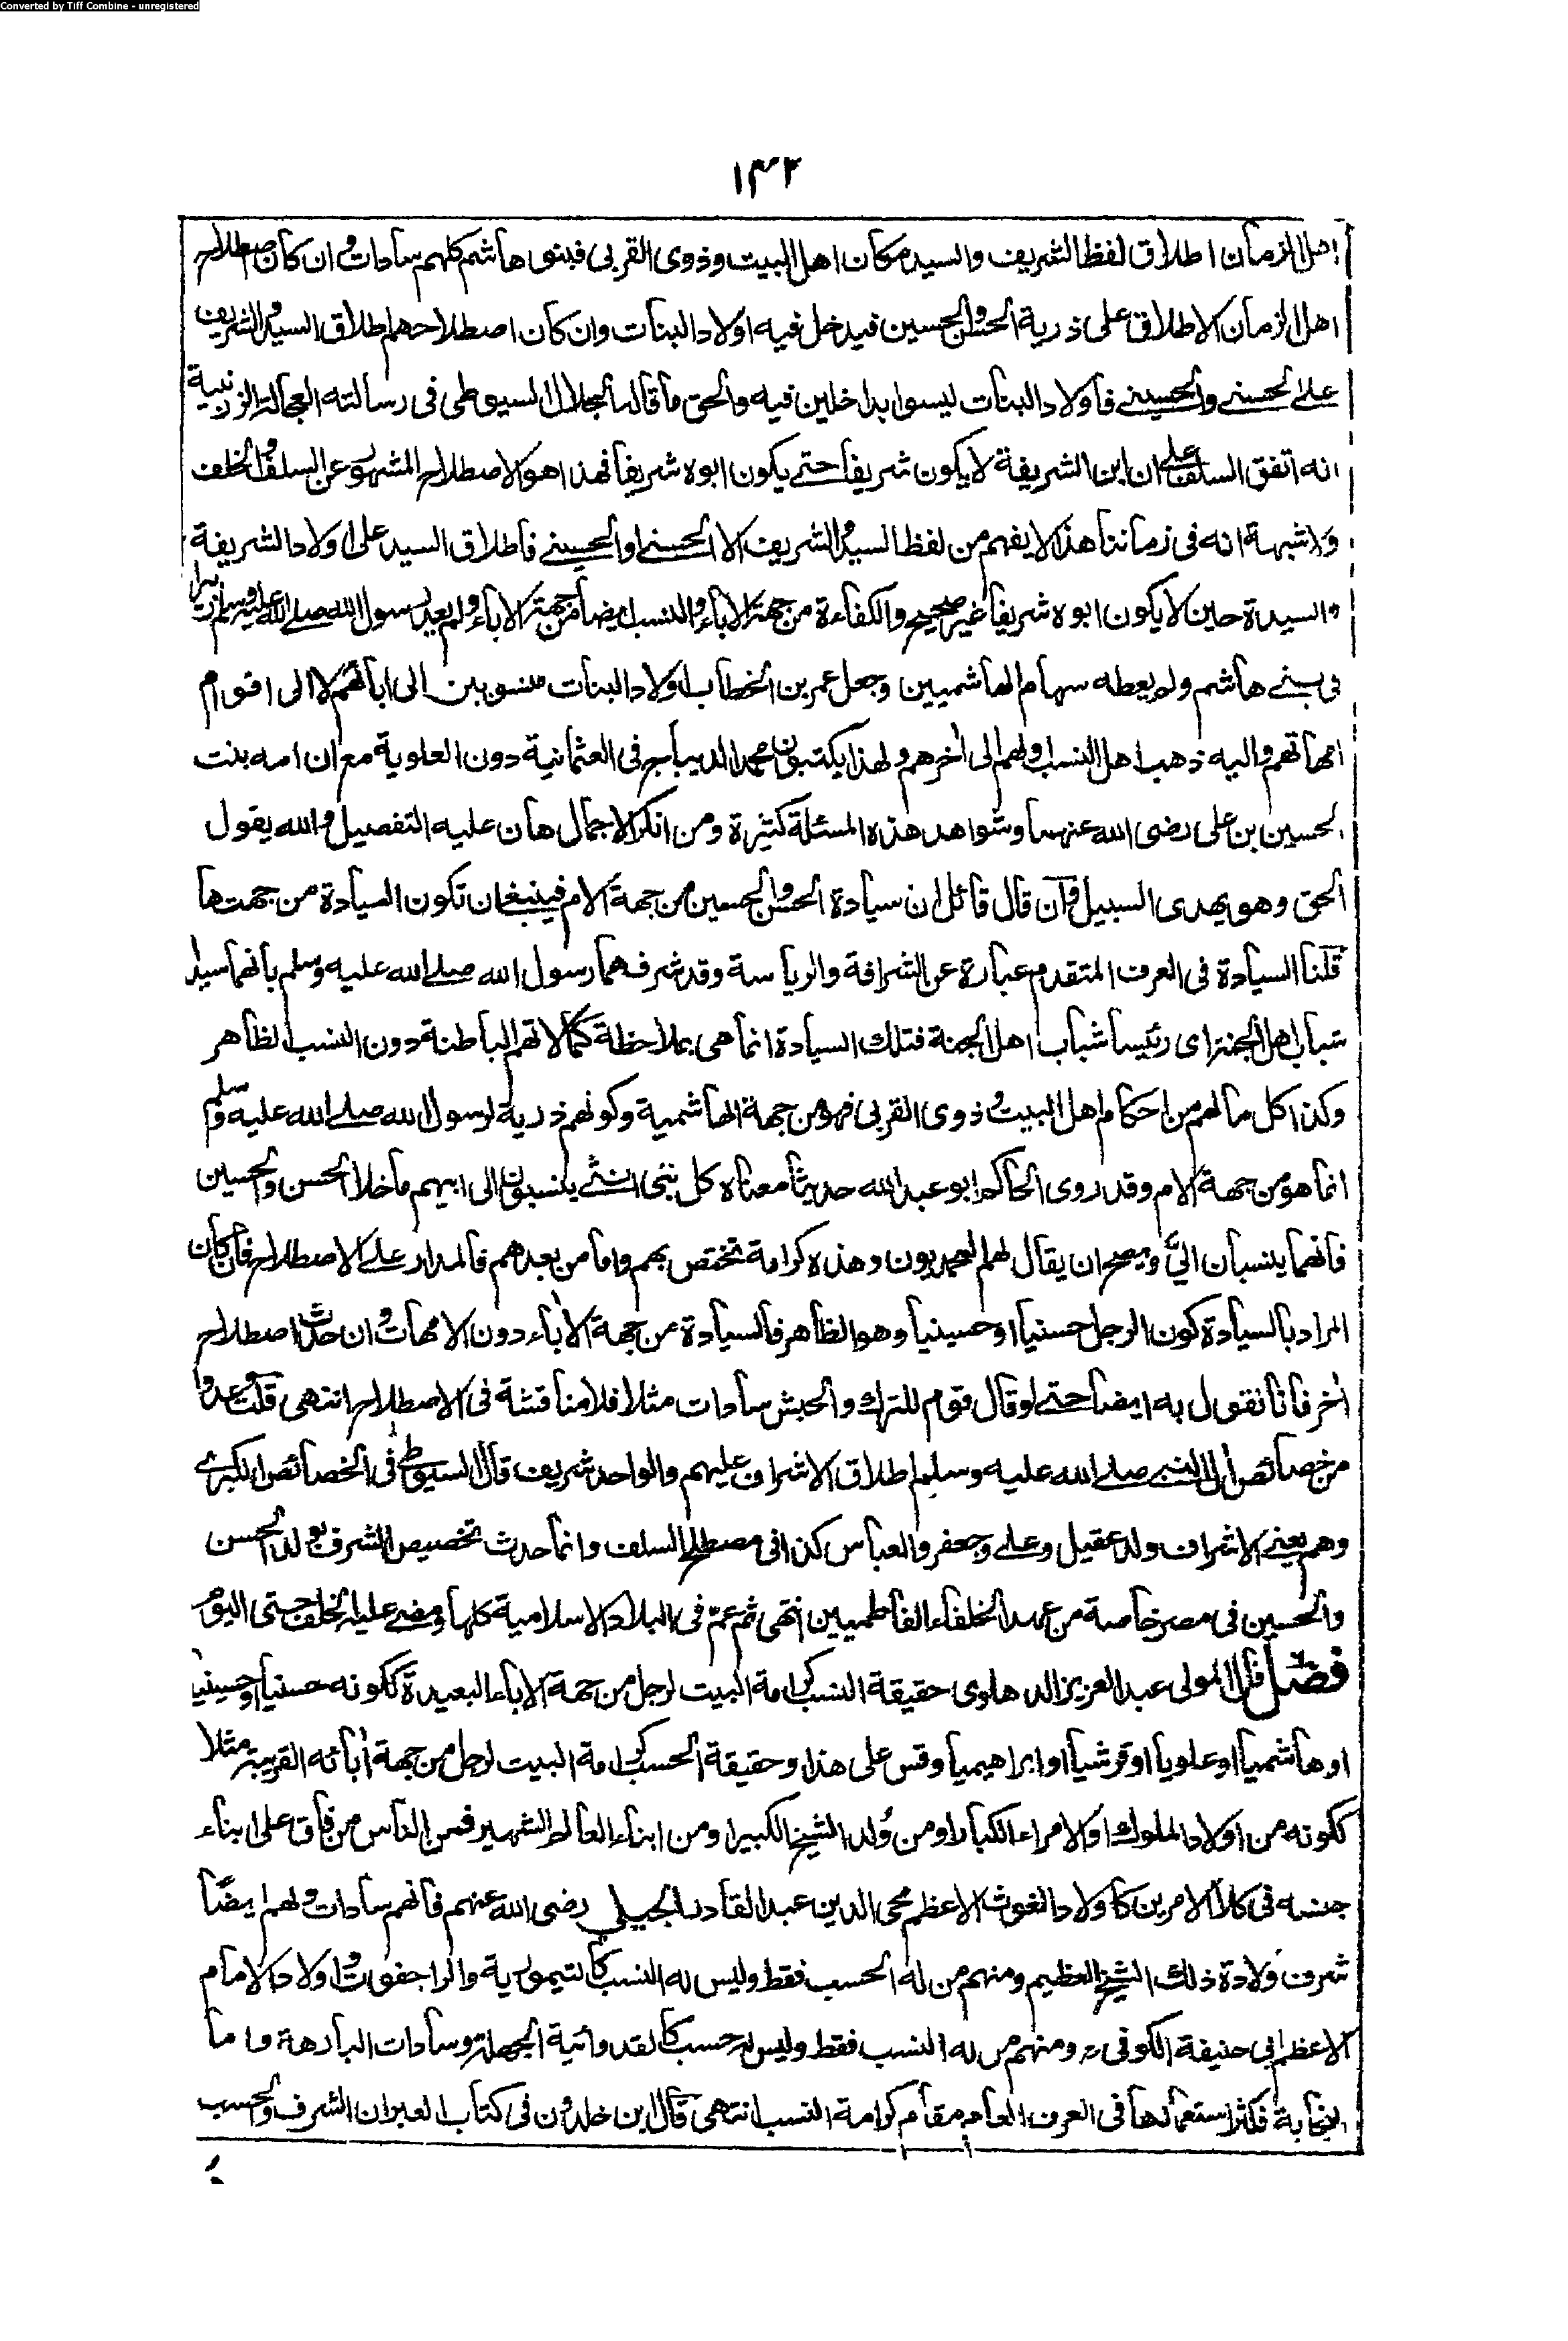 Converted by Tiff Combine - unregistered
١٣٢
اهل الزمان اطلاق لفظ الشريف والسيد مكان اهل البيت وذوى القربى فبنو هاشم كلهم سادات وان كان اصطلاح
اهل الزمان الاطلاق على ذرية الحسن والحسين فيدخل فيه اولاد البنات وان كان اصطلاحهم اطلاق السيد والشريف
على الحسنى والحسينى فاولاد البنات ليسوا بداخلين فيه والحق ما قاله الجلال السيوطى فى رسالته العجالة الزرنبية
انه اتفق السلف على ان ابن الشريفة لا يكون شريفا حتى يكون ابوه شريفا فهذا هو الاصطلاح المشهور عن السلف والخلف
ولا شبهة انه فى زماننا هذا لا يفهم من لفظ السيد والشريف الا الحسنى او الحسينى فاطلاق السيد على اولاد الشريفة
والسيدة حين لا يكون ابوه شريفا غير صحيح والكفاءة من جهة الاباء والنسب ايضا من جهة الاباء ولم يعد رسول الله صلى الله عليه وسلم
فى بنى هاشم ولم يعطه سهام الهاشميين وجعل عمر بن الخطاب اولاد البنات منسوبين الى ابائهم لا الى اقوام
امهاتهم واليه ذهب اهل النسب اولهم الى اٰخرهم ولهذا يكتبون محمد الديباج فى العثمانية دون العلوية مع ان امه بنت
الحسين بن على رضى الله عنهما وشواهد هذه المسئلة كثيرة ومن انكر الاجمال هان عليه التفصيل والله يقول
الحق وهو يهدى السبيل فان قال قائل ان سيادة الحسن والحسين من جهة الام فينبغى ان تكون السيادة من جهتها
قلنا السيادة فى العرف المتقدم عبارة عن الشرافة والرياسة وقد شرفهما رسول الله صلى الله عليه وسلم بانهما سيدا
شباب اهل الجنة اى رئيسا شباب اهل الجنة فتلك السيادة انما هى بملاحظة كمالاتهم الباطنة دون النسب الظاهر
وكذا كل ما لهم من احكام اهل البيت وذوى القربى فهو من جهة الهاشمية وكونهم ذرية لرسول الله صلى الله عليه وسلم
انما هو من جهة الام وقد روى الحاكم ابو عبد الله حديثا معناه كل بنى انثى ينسبون الى ابيهم ما خلا الحسن والحسين
فانهما ينسبان الىّ ويصح ان يقال لهم المحمديون وهذه كرامة تختص بهم واما من بعدهم فالمدار على الاصطلاح فان كان
المراد بالسيادة كون الرجل حسنيا او حسينيا وهو الظاهر فالسيادة من جهة الاٰباء دون الامهات وان حدث اصطلاح
اٰخر فانا نقول به ايضا حتى لو قال قوم للترك والحبش سادات مثلا فلا مناقشة فى الاصطلاح انتهى قلت وعدوا
من خصائص اٰل النبى صلى الله عليه وسلم اطلاق الاشراف عليهم والواحد شريف قال السيوطى فى الخصائص الكبرى
وهم يعنى الاشراف ولد عقيل وعلى وجعفر والعباس كذا فى مصطلح السلف وانما حدث تخصيص الشرف بولد الحسن
والحسين فى مصر خاصة من عهد الخلفاء الفاطميين انتهى ثم عمّ فى البلاد الاسلامية كلها ومضى عليه الخلف حتى اليوم
فصل قال المولى عبد العزيز الدهلوى حقيقة النسب كرامة البيت لرجل من جهة الاٰباء البعيدة ككونه حسنيا او حسينيا
او هاشميا او علويا او قرشيا او ابراهيميا وقس على هذا وحقيقة الحسب كرامة البيت لرجل من جهة اٰبائه القريبة مثلا
ككونه من اولاد الملوك او الامراء الكبار او من وُلد الشيخ الكبير او من ابناء العالم الشهير فمن الناس من فاق على ابناء
جنسه فى كلا الامرين كاولاد الغوث الاعظم محى الدين عبد القادر الجيلى رضى الله عنهم فانهم سادات ولهم ايضًا
شرف ولادة ذلك الشيخ العظيم ومنهم من له الحسب فقط وليس له النسب كالتيمورية والراجفوت واولاد الامام
الاعظم ابى حنيفة الكوفى رح ومنهم من له النسب فقط وليس له حسب كالقدوائية الجهلة وسادات البارهة واما
النجابة فكثر استعمالها فى العرف العام مقام كرامة النسب انتهى قال ابن خلدون فى كتاب العبر ان الشرف والحسب